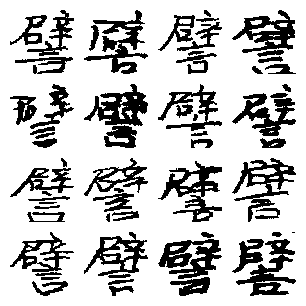 譬譬譬譬
譬譬譬譬
譬譬譬譬
譬譬譬譬